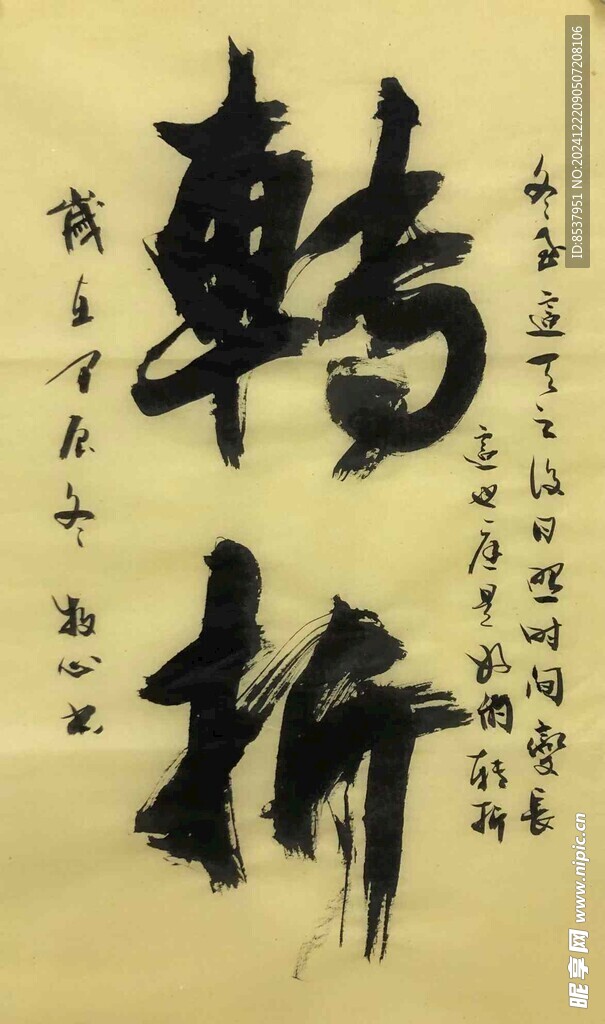 轉折
冬至這天之後日照时间變長
這也应是好的轉折
歲在甲辰冬 牧心书
ID:8537951 NO:20241222090507208106
昵享网 www.nipic.cn